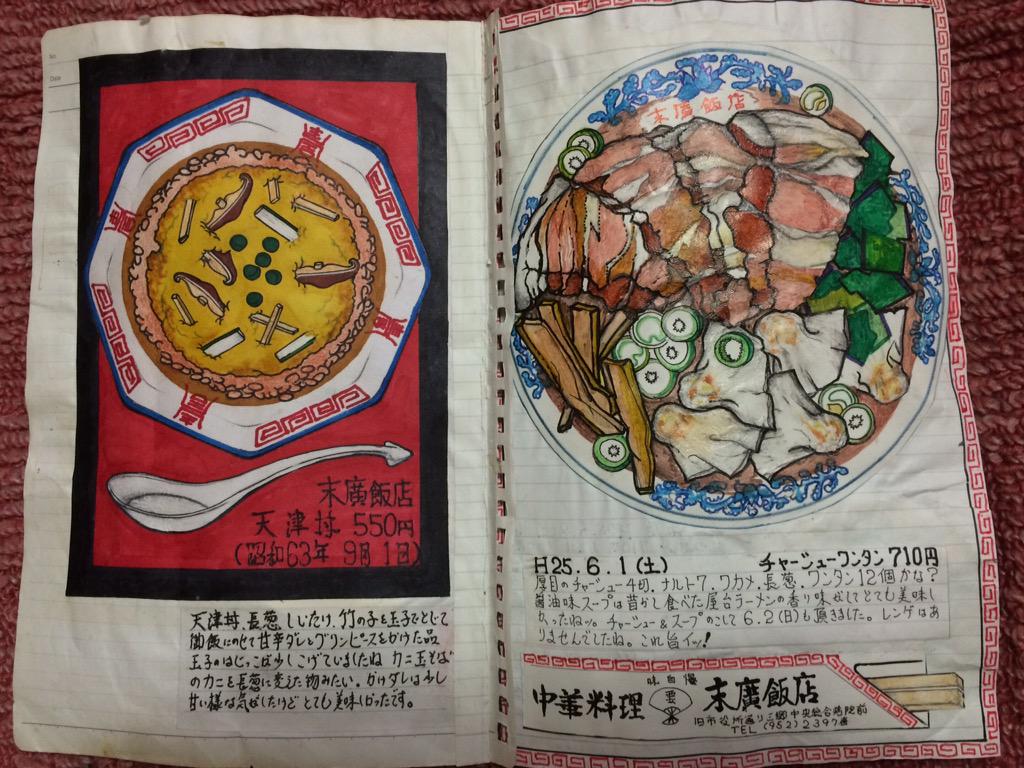 No.
Date
末廣飯店
天津丼 550円
(昭和63年 9月1日)
天津丼、長葱、しいたけ、竹の子を玉子でとじて
御飯にのせて甘辛ダレとグリンピースをかけた品
玉子のはじっこは少しこげていましたね カニ玉そば
のカニを長葱に変えた物みたい。かけダレは少し
甘い様な気がしたけど とても美味しかったです。
末廣飯店
H25.6.1(土) チャージューワンタン 710円
厚目のチャージュー4切、ナルト7、ワカメ、長葱、ワンタン12個かな?
醤油味スープは昔よく食べた屋台ラーメンの香り味がしてとても美味し
かったねッ。チャージュー&スープのこして6.2(日)も頂きました。レンゲはあ
りませんでしたね。これ旨イッ!
味自慢
中華料理 末廣飯店
旧市役所通り三郷中央総合病院前
TEL (952) 2397番